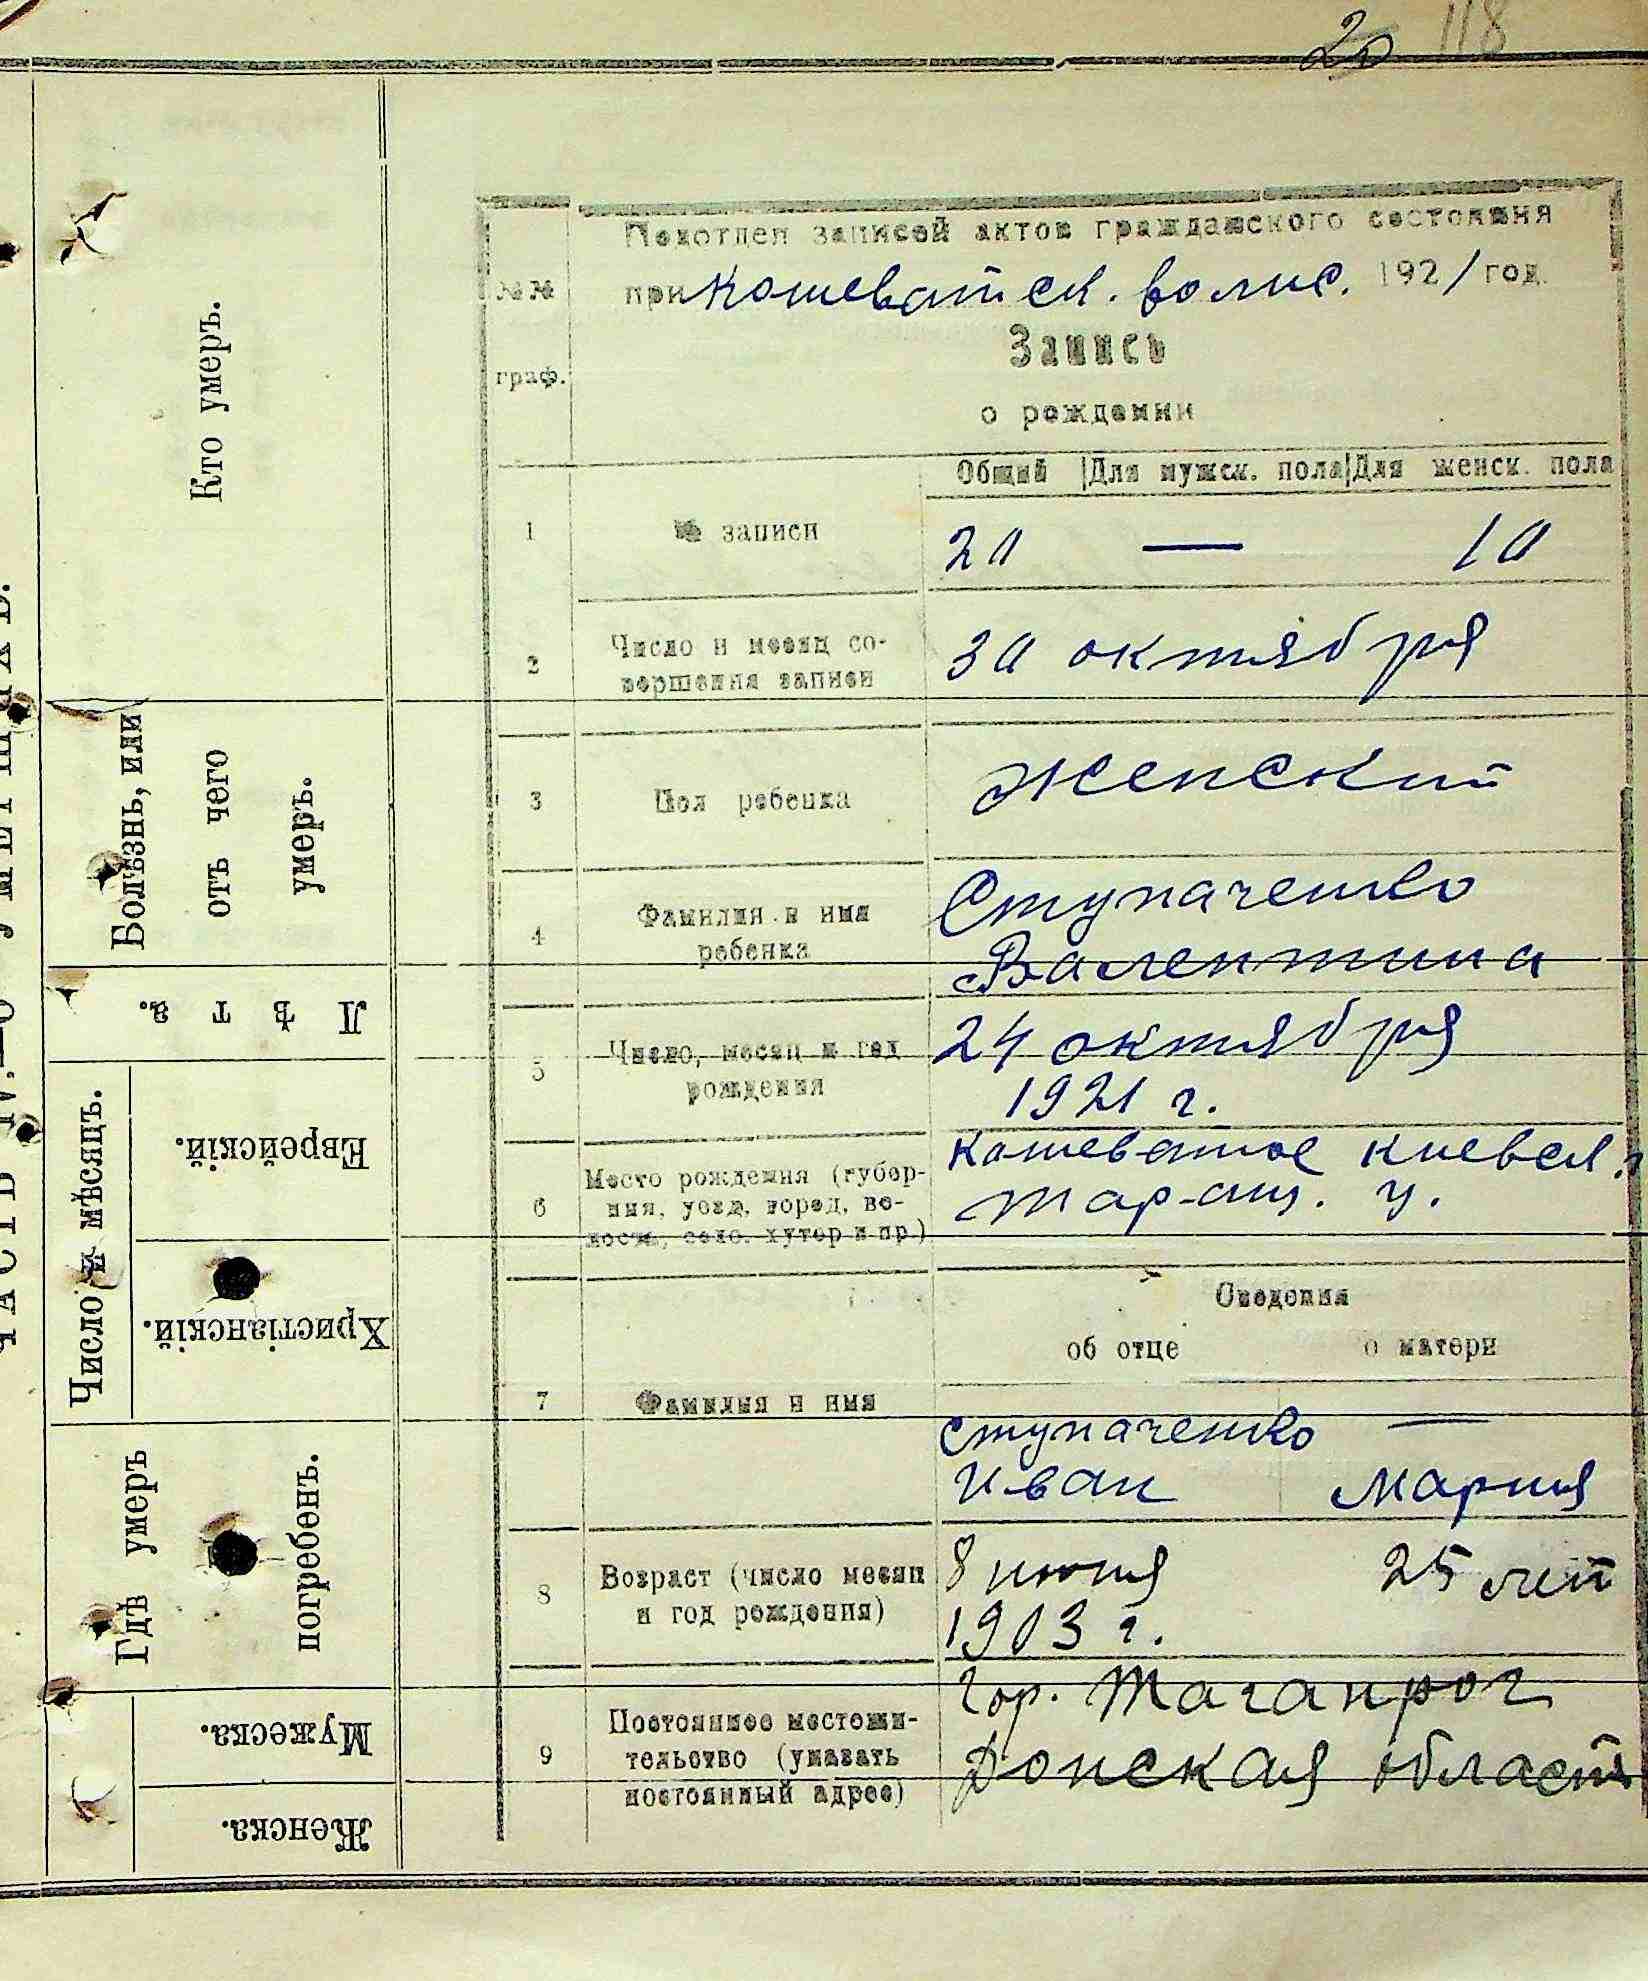 20 118
Подотдел записей актов гражданского состояния
№№
при Кошеватск. волис. 1921 год.
Запись
граф.
о рождении
Общий | Для мужск. пола | Для женск. пола
1 № записи 20 — 10
2 Число и месяц со-
вершения записи
30 октября
3 Пол ребенка Женский
4 Фамилия и имя
ребенка
Ступаченко
Валентина
5 Число, месяц и год
рождения
24 октября
1921 г.
6 Место рождения (губер-
ния, уезд, город, во-
лость, село, хутор и пр.)
Кошеватое Киевск. г.
Тар-ащ. у.
Сведения
об отце о матери
7 Фамилия и имя
Ступаченко —
Иван Мария
8 Возраст (число месяц
и год рождения)
8 июня 25 лет
1903 г.
9 Постоянное местожи-
тельство (указать
постоянный адрес)
Гор. Таганрог
Донская област
Кто умеръ.
Болѣзнь, или
отъ чего
умеръ.
Лѣта.
Число и мѣсяцъ.
Еврейскій.
Христіанскій.
Гдѣ умеръ
погребенъ.
Мужеска.
Женска.
ЧАСТЬ IV.—О УМЕРШИХЪ.